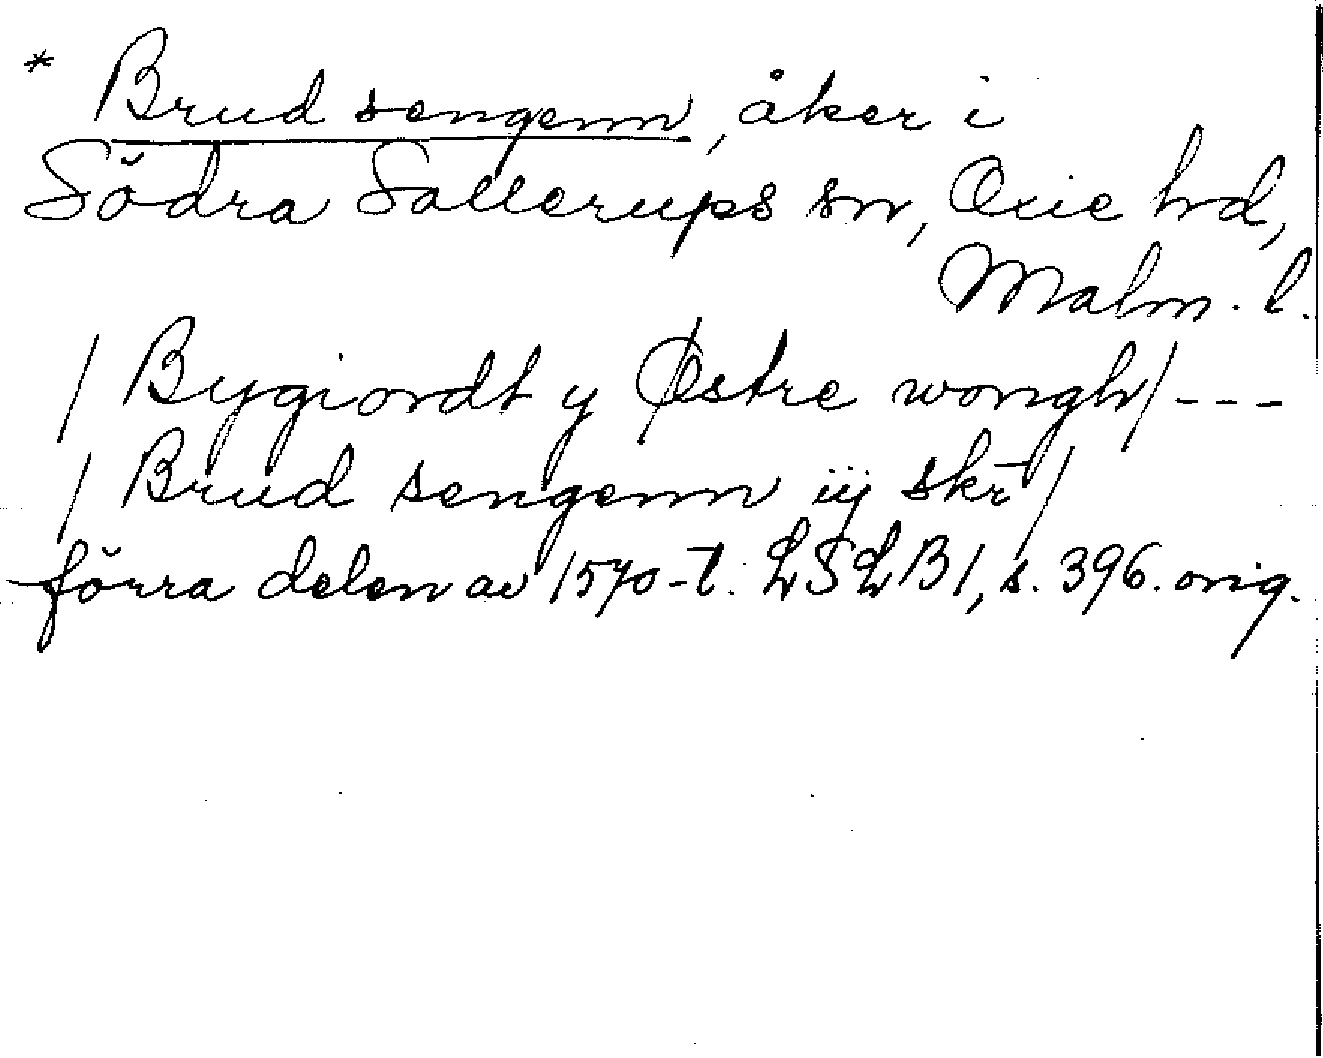 * Brud sengenn, åker i
Södra Sallerups sn, Oxie hd,
Malm. l.
/ Bygiordt y Østre wongh / ---
/ Brud sengenn iij skr̄ /
förra delen av 1570-t. LSLB1, s. 396. orig.